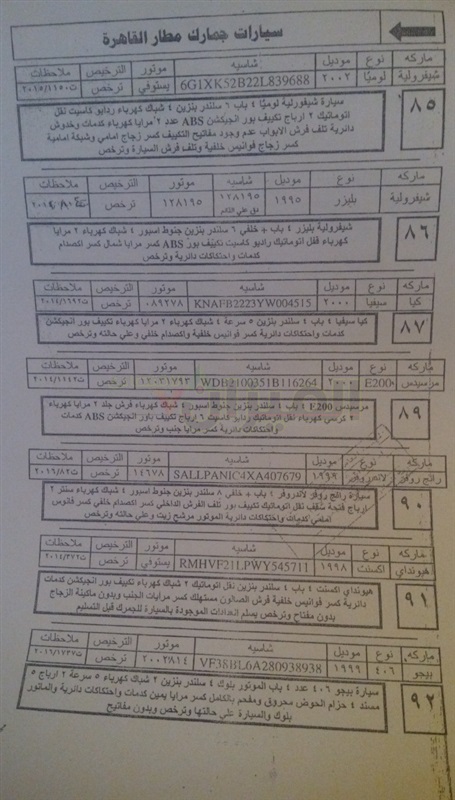 سيارات جمارك مطار القاهرة
ماركه نوع موديل شاسيه موتور الترخيص ملاحظات
شيفرولية لومينا ٢٠٠٢ 6G1XK52B22L839688 يستوفي ترخص ت٢٠١٥/١١٥٠
٨٥
سيارة شيفرولية لومينا ٤ باب ٦ سلندر بنزين ٤ شباك كهرباء راديو كاسيت نقل
اتوماتيك ٢ ارباج تكييف بور انجيكشن ABS عدد ٢ مرايا كهرباء كدمات وخدوش
دائرية تلف فرش الابواب عدم وجود مفاتيح التكييف كسر زجاج امامي وشبكة امامية
كسر زجاج فوانيس خلفية وتلف فرش السيارة وترخص
ماركه نوع موديل شاسيه موتور الترخيص ملاحظات
شيفرولية بليزر ١٩٩٥ ١٢٨١٩٥ ١٢٨١٩٥ ترخص
دق علي التام
٨٦
شيفرولية بليزر ٤ باب + خلفي ٦ سلندر بنزين جنوط اسبور ٤ شباك كهرباء ٢ مرايا
كهرباء نقل اتوماتيك راديو كاسيت تكييف بور ABS كسر مرايا شمال كسر اكصدام
كدمات واحتكاكات دائرية وترخص
ماركه نوع موديل شاسيه موتور الترخيص ملاحظات
كيا سيفيا ٢٠٠٠ KNAFB2223YW004515 ٠٨٩٢٧٨ ترخص ت٢٠١٤/١١٩٢
٨٧
كيا سيفيا ٤ باب ٤ سلندر بنزين ٥ سرعة ٤ شباك كهرباء ٢ مرايا كهرباء تكييف بور انجيكشن
كدمات واحتكاكات دائرية كسر فوانيس خلفية واكصدام خلفي وعلي حالته وترخص
ماركه نوع موديل شاسيه موتور الترخيص ملاحظات
مرسيدس E200 ٢٠٠٠ WDB2100351B116264 ١٢٠٣١٧٩٣ ترخص ت٢٠١٤/١١٤٢
٨٩
مرسيدس E200 ٤ باب ٤ سلندر بنزين جنوط اسبور ٤ شباك كهرباء فرش جلد ٢ مرايا كهرباء
٢ كرسي كهرباء نقل اتوماتيك راديو كاسيت ٦ ارباج تكييف باور انجيكشن ABS كدمات
واحتكاكات دائرية كسر مرايا جنب وترخص
ماركه نوع موديل شاسيه موتور الترخيص ملاحظات
رانج روفر لاندروفر ١٩٩٩ SALLPANIC4XA407679 ١٤٦٧٨ ترخص ت٢٠١٦/٨٢
٩٠
سيارة رانج روفر لاندروفر ٤ باب + خلفي ٨ سلندر بنزين جنوط اسبور ٤ شباك كهرباء سنتر ٢
ارباج فتحة سقف نقل اتوماتيك تكييف بور تلف الفرش الداخلي كسر اكصدام خلفي كسر فانوس
امامي كدمات واحتكاكات دائرية الموتور مرشح زيت وعلي حالته وترخص
ماركه نوع موديل شاسيه موتور الترخيص ملاحظات
هيونداي اكسنت ١٩٩٨ RMHVF21LPWY545711 يستوفي ترخص ت٢٠١٤/٣٧٢
٩١
هيونداي اكسنت ٤ باب ٤ سلندر بنزين نقل اتوماتيك ٢ شباك كهرباء تكييف بور انجيكشن كدمات
دائرية كسر فوانيس خلفية فرش الصالون مستهلك كسر مرايات الجنب وبدون ماكينة الزجاج
بدون مفتاح وترخص يسلم العدادات الموجودة بالسيارة للجمرك قبل التسليم
ماركه نوع موديل شاسيه موتور الترخيص ملاحظات
بيجو ٤٠٦ ١٩٩٩ VF38BL6A280938938 ٢٠٠٢٨١٤ ترخص ت٢٠١٦/١٧٣٧
٩٢
سيارة بيجو ٤٠٦ عدد ٤ باب الموتور بلوك ٤ سلندر بنزين ٢ شباك كهرباء ٥ سرعة ٢ ارباج ٥
مسند ٤ حزام الحوض محروق ومفحم بالكامل كسر مرايا يمين كدمات واحتكاكات دائرية والماتور
بلوك والسيارة علي حالتها وترخص وبدون مفاتيح